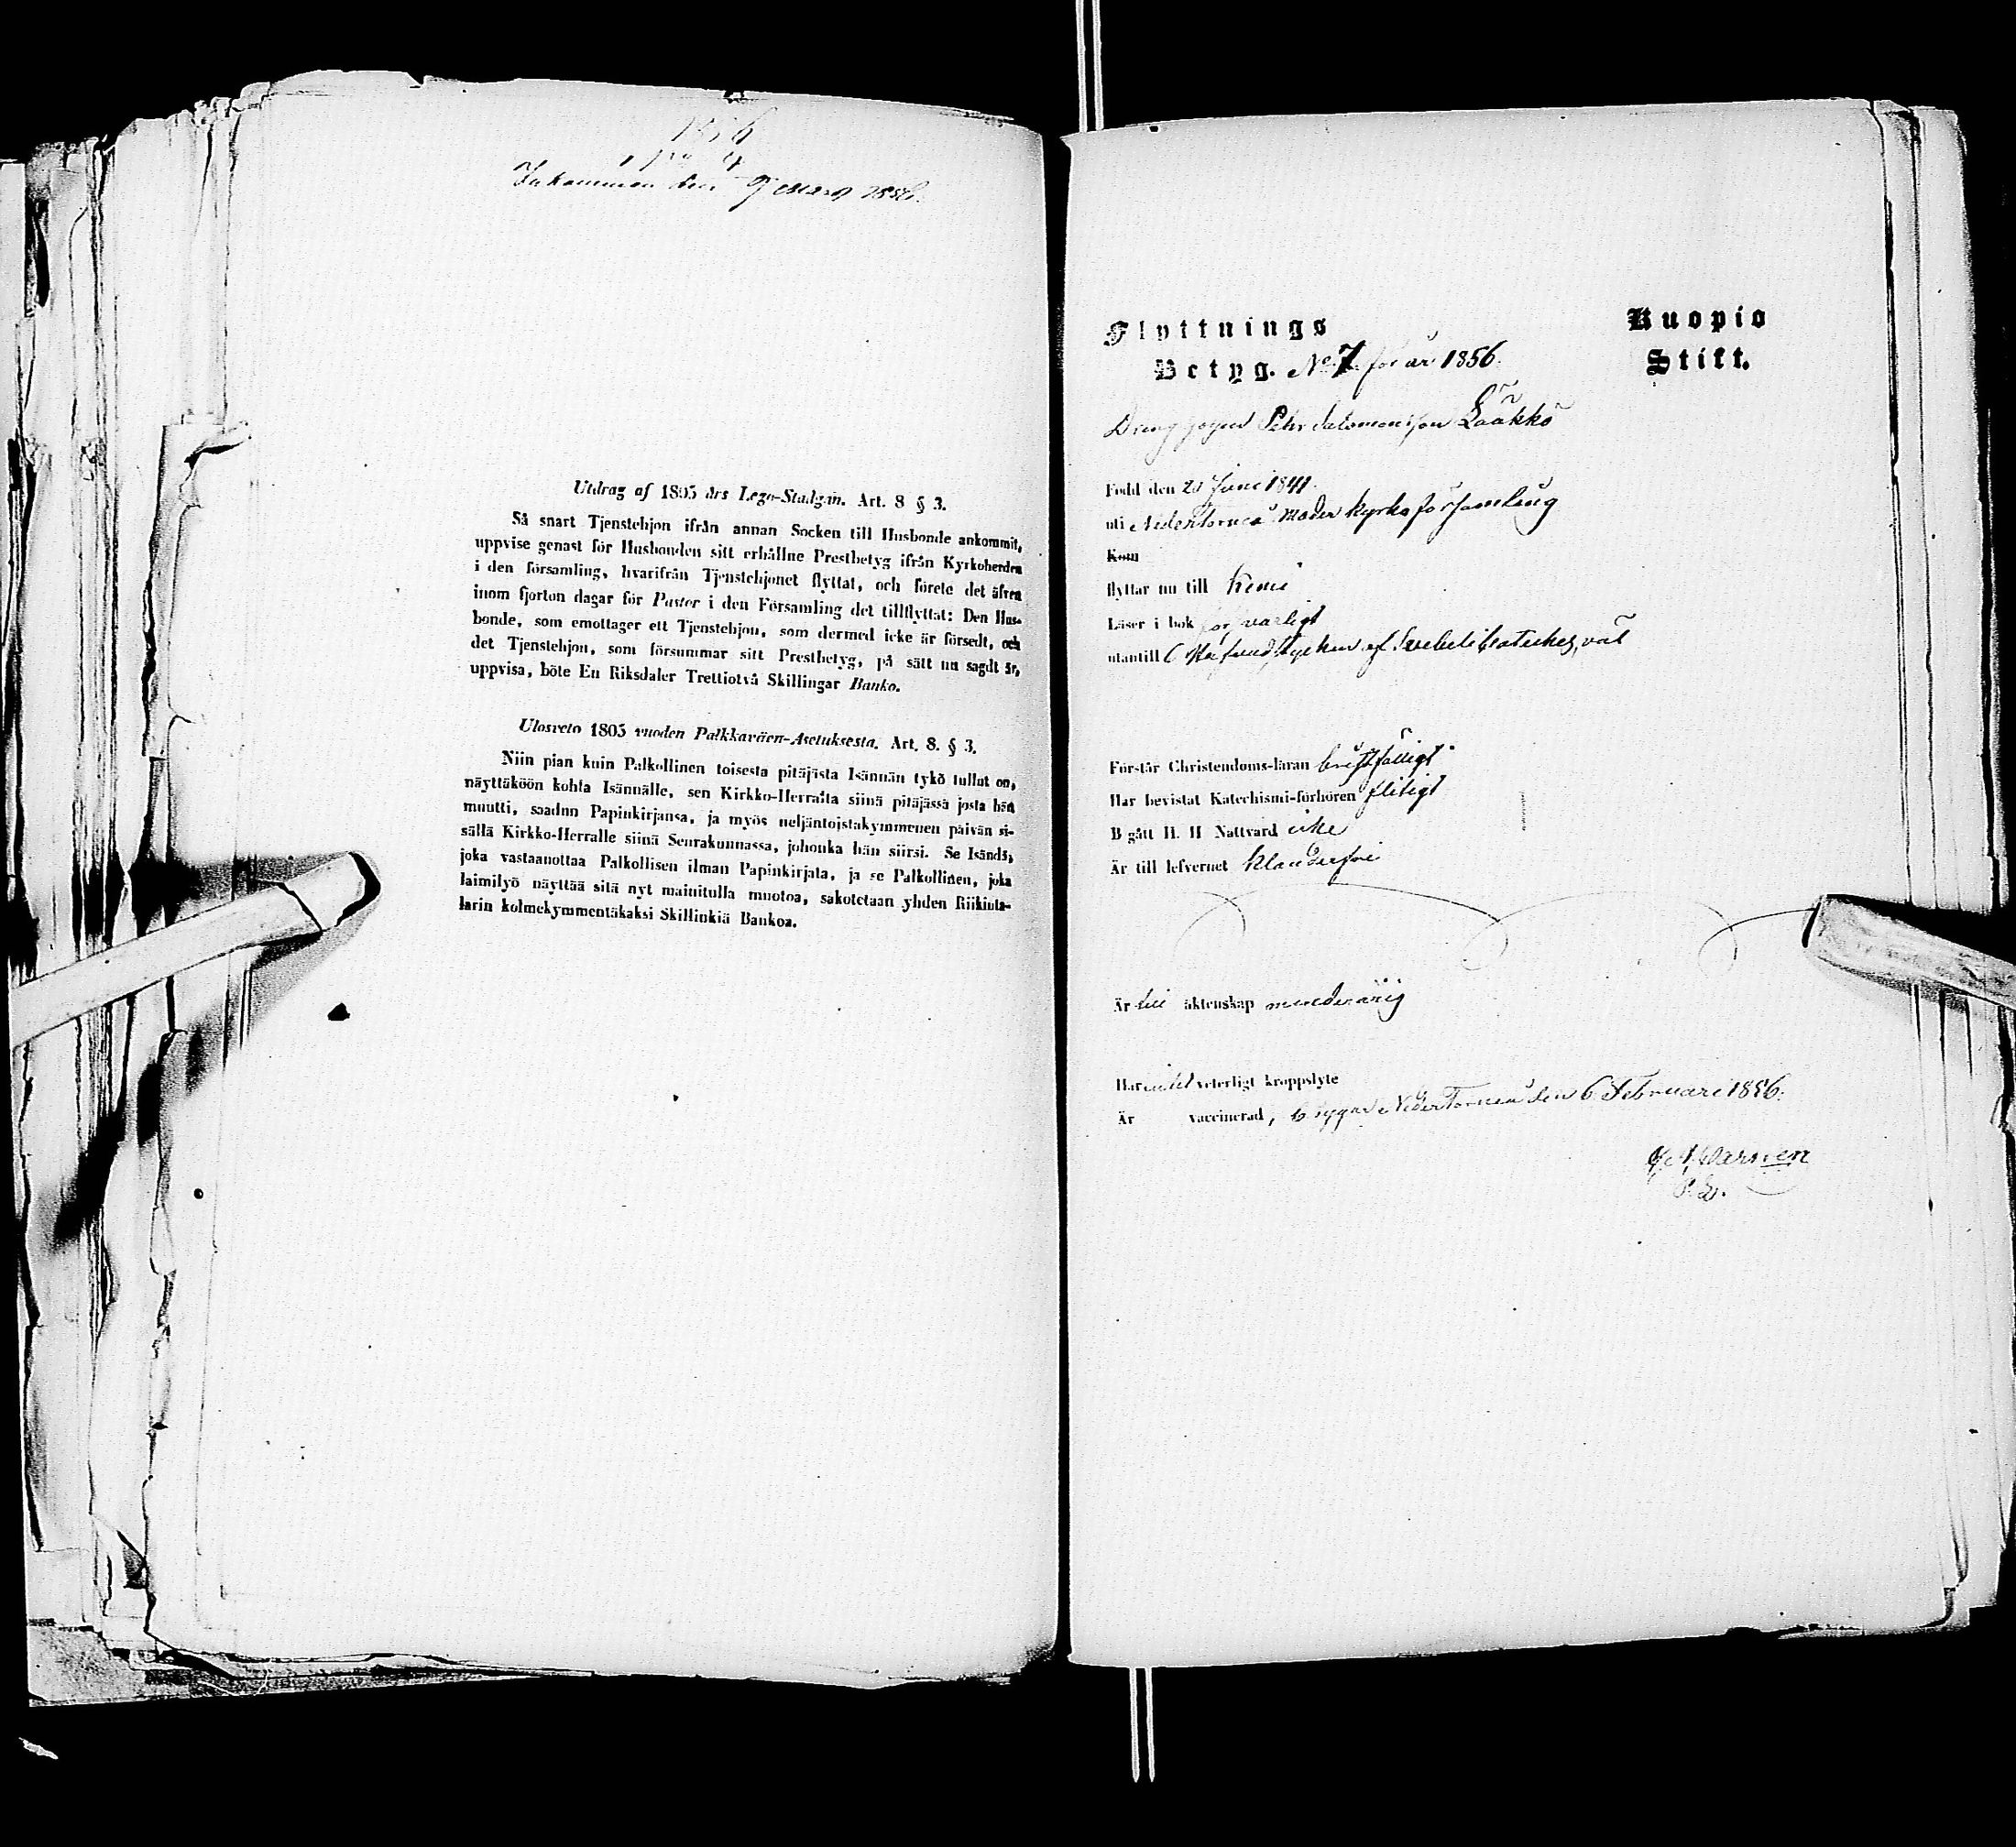 1856
Inkommen den 9 Mars 1856.
Utdrag af 1805 års Lego-Stadgan. Art. 8 § 3.
Så snart Tjenstehjon ifrån annan Socken till Husbonde ankommit,
uppvise genast för Husbonden sitt erhållne Prestbetyg ifrån Kyrkoherden
i den församling, hvarifrån Tjenstehjonet flyttat, och förete det äfven
inom fjorton dagar för Pastor i den Församling det tillflyttat: Den Hus-
bonde, som emottager ett Tjenstehjon, som dermed icke är försedt, och
det Tjenstehjon, som försummar sitt Prestbetyg, på sätt nu sagdt är,
uppvisa, böte En Riksdaler Trettiotvå Skillingar Banko.
Ulosveto 1805 vuoden Palkkaväen-Asetuksesta. Art. 8. § 3.
Niin pian kuin Palkollinen toisesta pitäjästä Isännän tykö tullut on,
näyttäköön kohta Isännälle, sen Kirkko-Herralta siinä pitäjässä josta hän
muutti, saadun Papinkirjansa, ja myös neljäntoistakymmenen päivän si-
sällä Kirkko-Herralle siinä Seurakunnassa, johonka hän siirsi. Se Isändä,
joka vastaanottaa Palkollisen ilman Papinkirjata, ja se Palkollinen, joka
laimilyö näyttää sitä nyt mainitulla muotoa, sakotetaan yhden Riikinta-
larin kolmekymmentäkaksi Skillinkiä Bankoa.
Flyttnings
Betyg. No 7 för år 1856.
Kuopio
Stift.
Drengpojen Pehr Salomonsson Lääkkö
Född den 20 Juni 1841.
uti NederTorneå Moderkyrkoförsamling
Kom
flyttar nu till Kemi
Läser i bok försvarligt
utantill Hufvudstycken af Svebelii Kateches, väl
Förstår Christendoms-läran bristfälligt
Har bevistat Katechismi-förhören flitigt
Begått H. H Nattvard icke
Är till lefvernet klanderfri
Är till äktenskap minderårig
Har intet veterligt kroppslyte
Är vaccinerad, betygar NederTorneå den 6 Februari 1856.